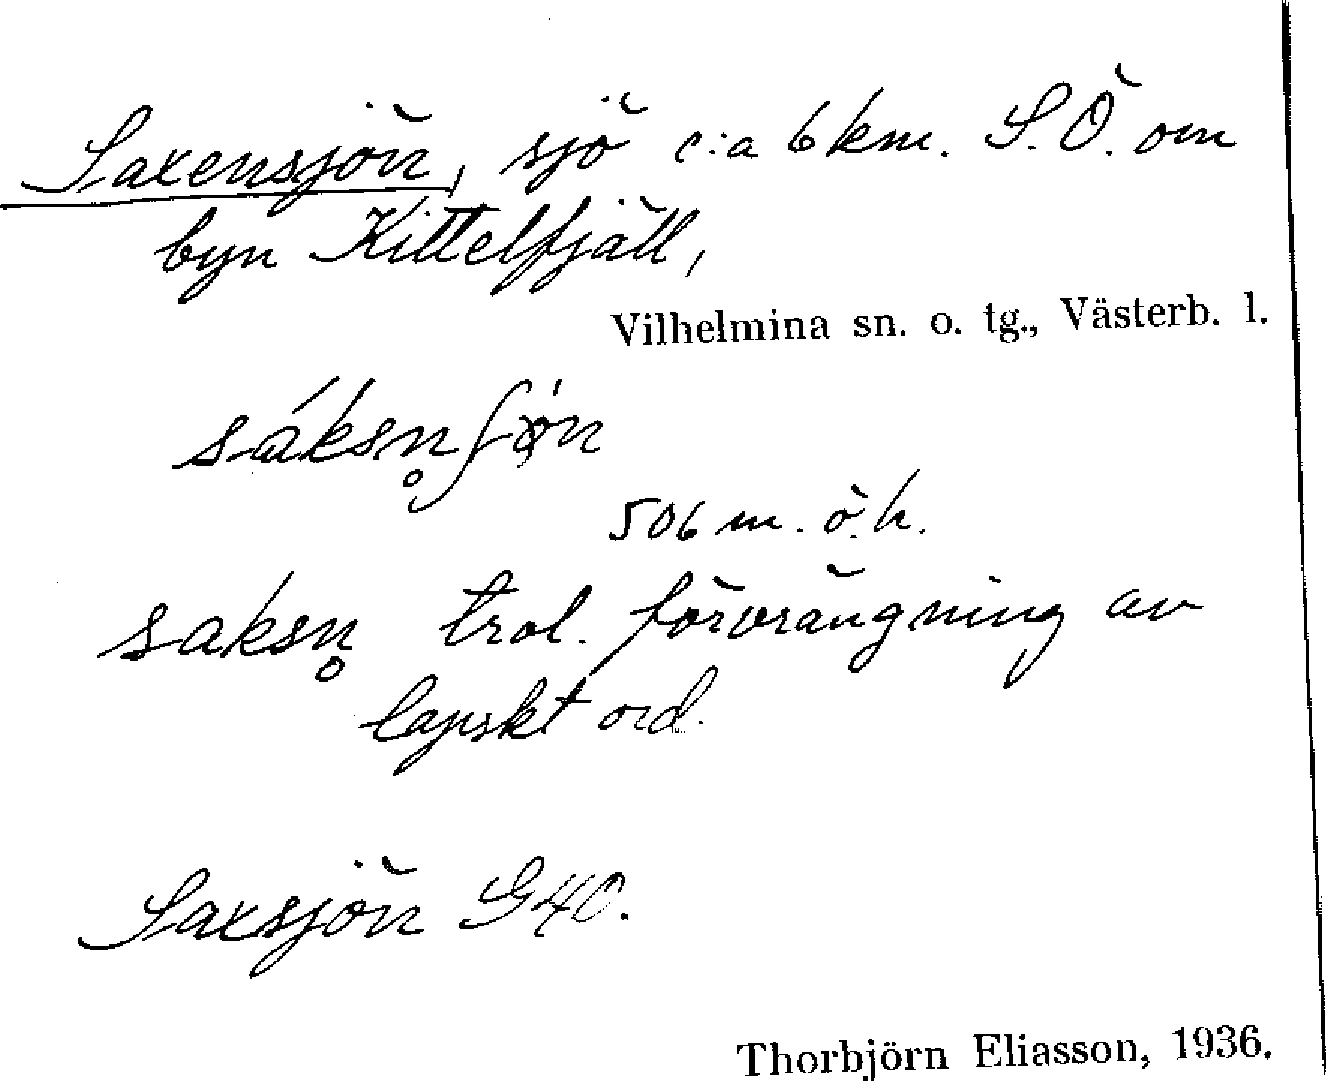 Saxensjön, sjö c:a 6 km. S.Ö. om
byn Kittelfjäll,
Vilhelmina sn. o. tg., Västerb. l.
sáksn̥ʃø̀n
506 m. ö. h.
saksn̥ trol. förvrängning av
lapskt ord.
Saxsjön G40.
Thorbjörn Eliasson, 1936.